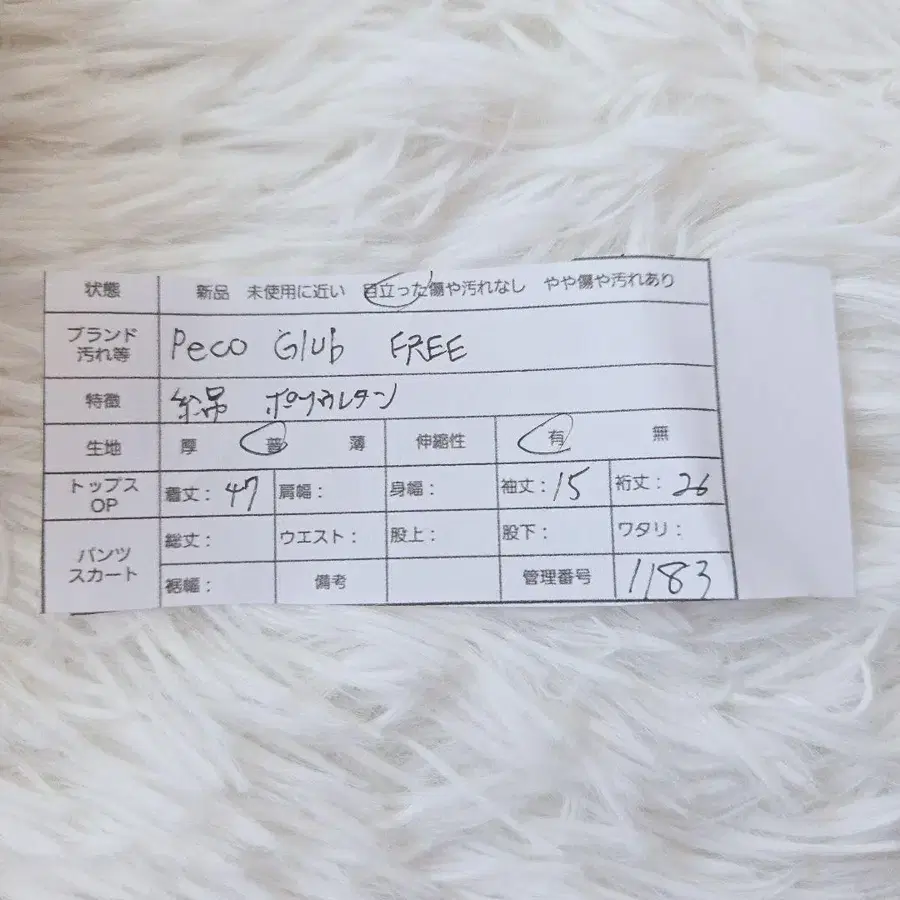 状態 新品 未使用に近い 目立った傷や汚れなし やや傷や汚れあり
ブランド 汚れ等 Peco Glub FREE
特徴 ポリウレタン
生地 厚 普 薄 伸縮性 有 無
トップス OP 着丈: 47 肩幅: 身幅: 袖丈: 15 裄丈: 26
パンツ スカート 総丈: ウエスト: 股上: 股下: ワタリ:
裾幅: 備考 管理番号 1183